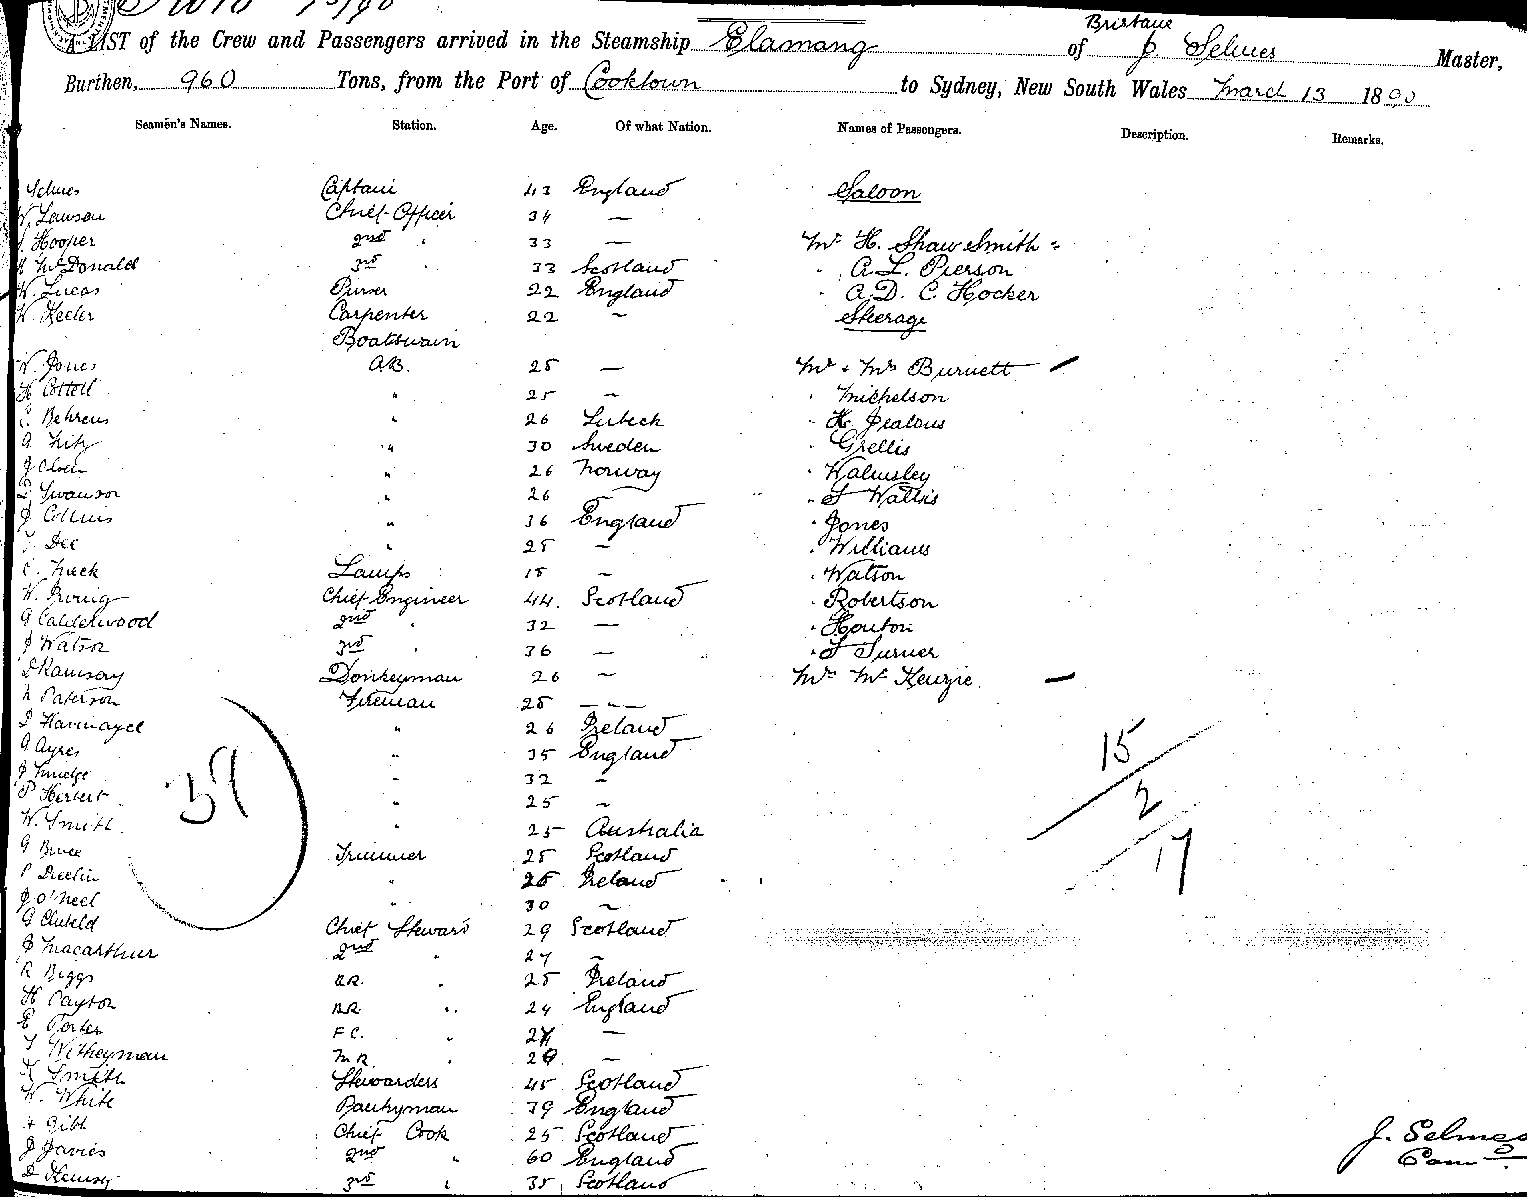 A LIST of the Crew and Passengers arrived in the Steamship Elamang of Brisbane J. Selmes Master,
Burthen, 960 Tons, from the Port of Cooktown to Sydney, New South Wales March 13 1890
Seamen's Names. Station. Age. Of what Nation. Names of Passengers. Description. Remarks.
Selmes Captain 43 England Saloon
W. Lawson Chief Officer 34 —
Hooper 2nd " 33 — Mr H. Shaw Smith
McDonald 3rd " 33 Scotland " A. L. Pierson
W. Lucas Purser 22 England " A. D. C. Hocker
W. Keeler Carpenter 22 ~ Steerage
Boatswain
W. Jones A.B. 25 — Mr & Mrs Burnett
H Cottell " 25 ~ " Michelson
C. Behrens " 26 Lubeck " H. Jealous
" 30 Sweden " Grellis
J Olsen " 26 Norway " Walmsley
Swanson " 26 " T Wallis
J Collins " 36 England " Jones
T Dee " 25 ~ " Williams
Lamps 15 ~ " Watson
W. Irving Chief Engineer 44. Scotland " Robertson
G Calderwood 2nd " 32 — " Houton
J Watson 3rd " 36 — " T Turner
D Ramsay Donkeyman 26 ~ Mrs McKenzie
Paterson Fireman 25 — — —
" 26 Ireland
G Ayres " 35 England
J Smidge " 32 ~
P Herbert " 25 ~
W. Smith " 25 Australia
G Bruce Trimmer 25 Scotland
P Deelin " 26 Ireland
J O'Neel " 30 ~
G Cluteld Chief Steward 29 Scotland
J Macarthur 2nd " 27 ~
R Biggs B.R. " 25 Ireland
H Payton B.R. " 24 England
E Porter F C. " 24 —
T Witheyman M R " 29 —
K Smith Stewardess 45 Scotland
W. White Pantryman 39 England
A Gibb Chief Cook 25 Scotland
J Davies 2nd " 60 England
3rd " 35 Scotland
37
15
2
17
J. Selmes
Com